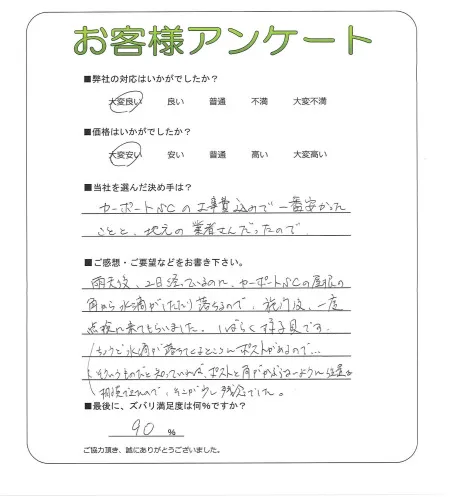 お客様アンケート
■弊社の対応はいかがでしたか？
大変良い 良い 普通 不満 大変不満
■価格はいかがでしたか？
大変安い 安い 普通 高い 大変高い
■当社を選んだ決め手は？
カーポートSCの工事費込みで一番安かった
ことと、地元の業者さんだったので。
■ご感想・ご要望などをお書き下さい。
雨天後、2日経っているのに、カーポートSCの屋根の
角から水滴がしたたり落ちるので、施行後、一度
点検に来てもらいました。しばらく様子見です。
ちょうど水滴が落ちてくるところにポストがあるので…
そういうものだと知っていれば、ポストと角がかぶらないように位置を
相談できたので、そこが少し残念でした。
■最後に、ズバリ満足度は何％ですか？
90 ％
ご協力頂き、誠にありがとうございました。